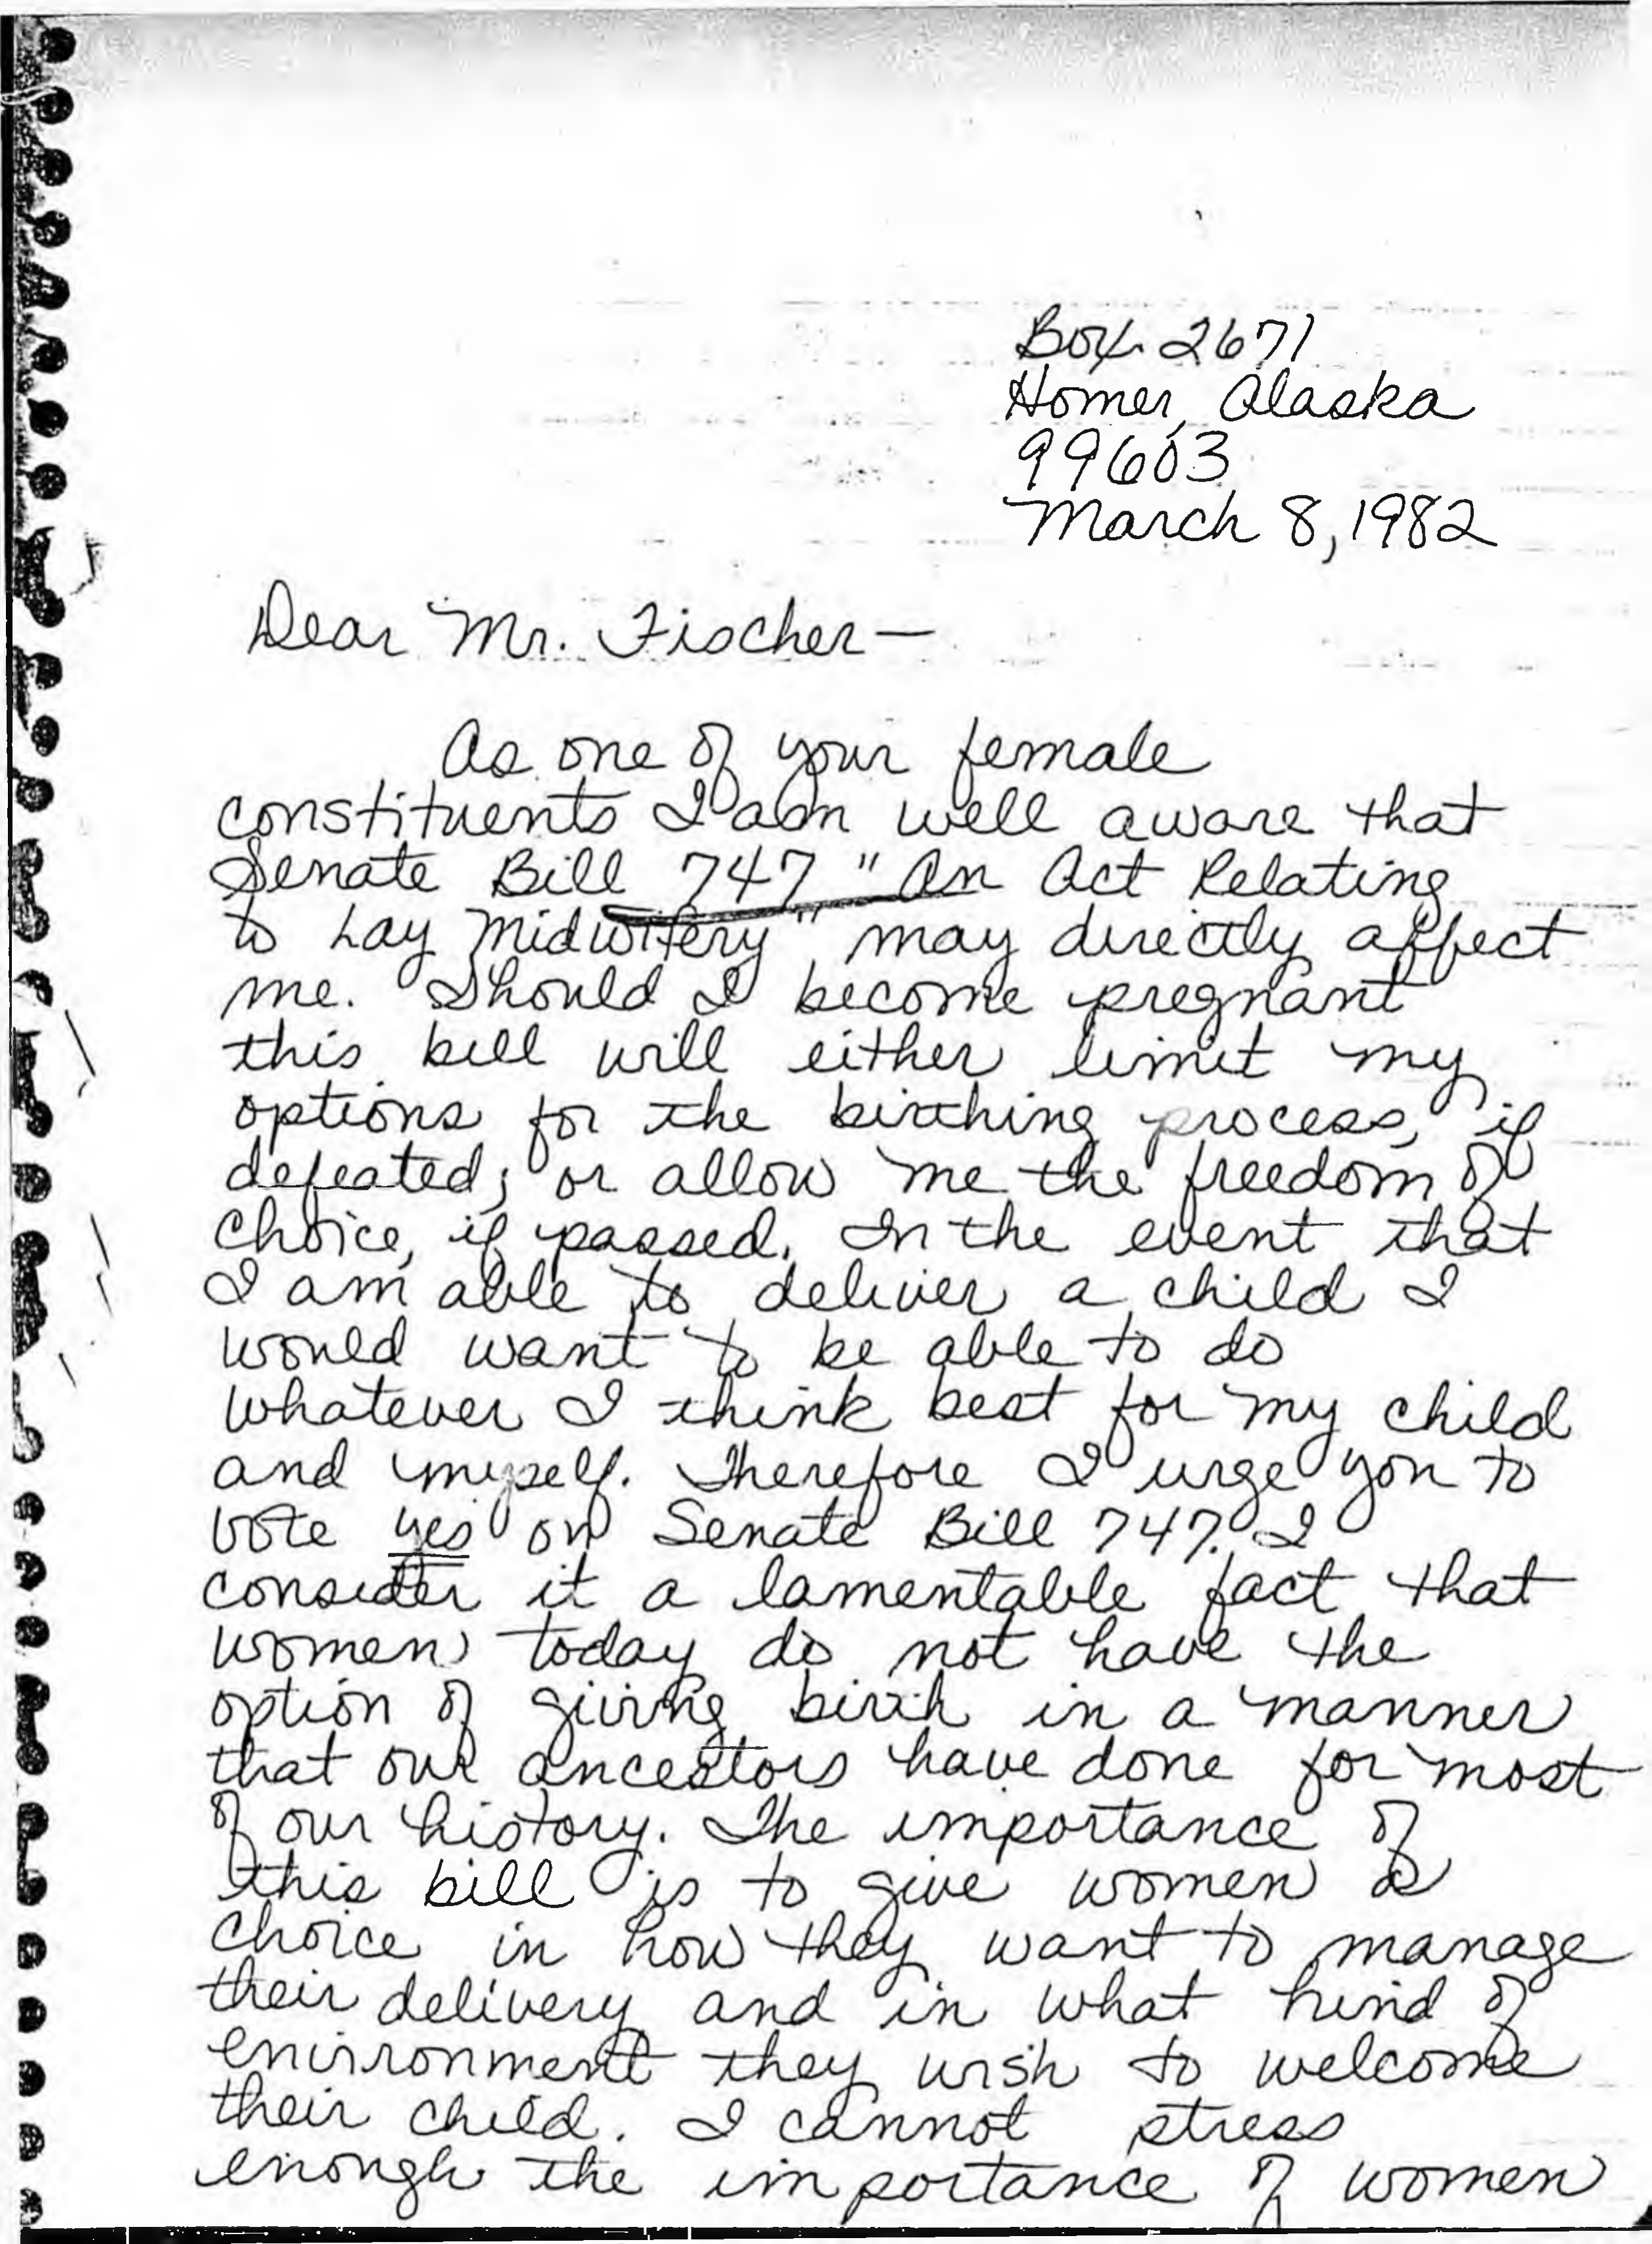 Box 2671
Homer, Alaska
99603
March 8, 1982
Dear Mr. Fischer—
As one of your female
constituents I am well aware that
Senate Bill 747 "An Act Relating
to Lay Midwifery" may directly affect
me. Should I become pregnant
this bill will either limit my
options for the birthing process, if
defeated; or allow me the freedom of
choice, if passed. In the event that
I am able to deliver a child I
would want to be able to do
whatever I think best for my child
and myself. Therefore I urge you to
vote yes on Senate Bill 747. I
consider it a lamentable fact that
women today do not have the
option of giving birth in a manner
that our ancestors have done for most
of our history. The importance of
this bill is to give women a
choice in how they want to manage
their delivery and in what kind of
enironment they wish to welcome
their child. I cannot stress
enough the importance of women